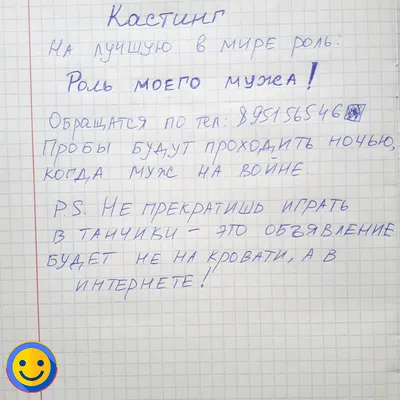 Кастинг
на лучшую в мире роль:
Роль моего мужа!
Обращатся по тел: 895156546
Пробы будут проходить ночью,
когда муж на войне.
P.S. Не прекратишь играть
в танчики – это объявление
будет не на кровати, а в
интернете!